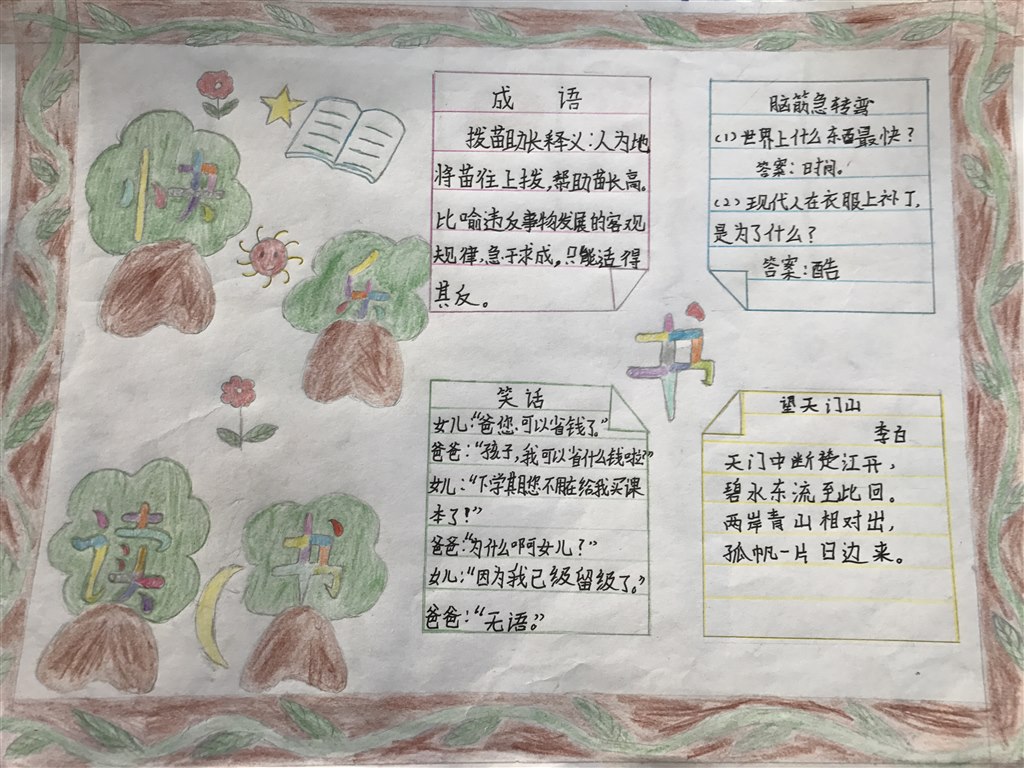 快
乐
读
书
成 语
拔苗助长释义：人为地
将苗往上拔，帮助苗长高。
比喻违反事物发展的客观
规律，急于求成，只能适得
其反。
脑筋急转弯
(1)世界上什么东西最快？
答案：时间。
(2)现代人在衣服上补丁，
是为了什么？
答案：酷
书
笑话
女儿：“爸您.可以省钱了。”
爸爸：“孩子，我可以省什么钱啦？”
女儿：“下学期您不用在给我买课
本了！”
爸爸：“为什么啊女儿？”
女儿：“因为我己级留级了。”
爸爸：“无语。”
望天门山
李白
天门中断楚江开，
碧水东流至此回。
两岸青山相对出，
孤帆一片日边来。